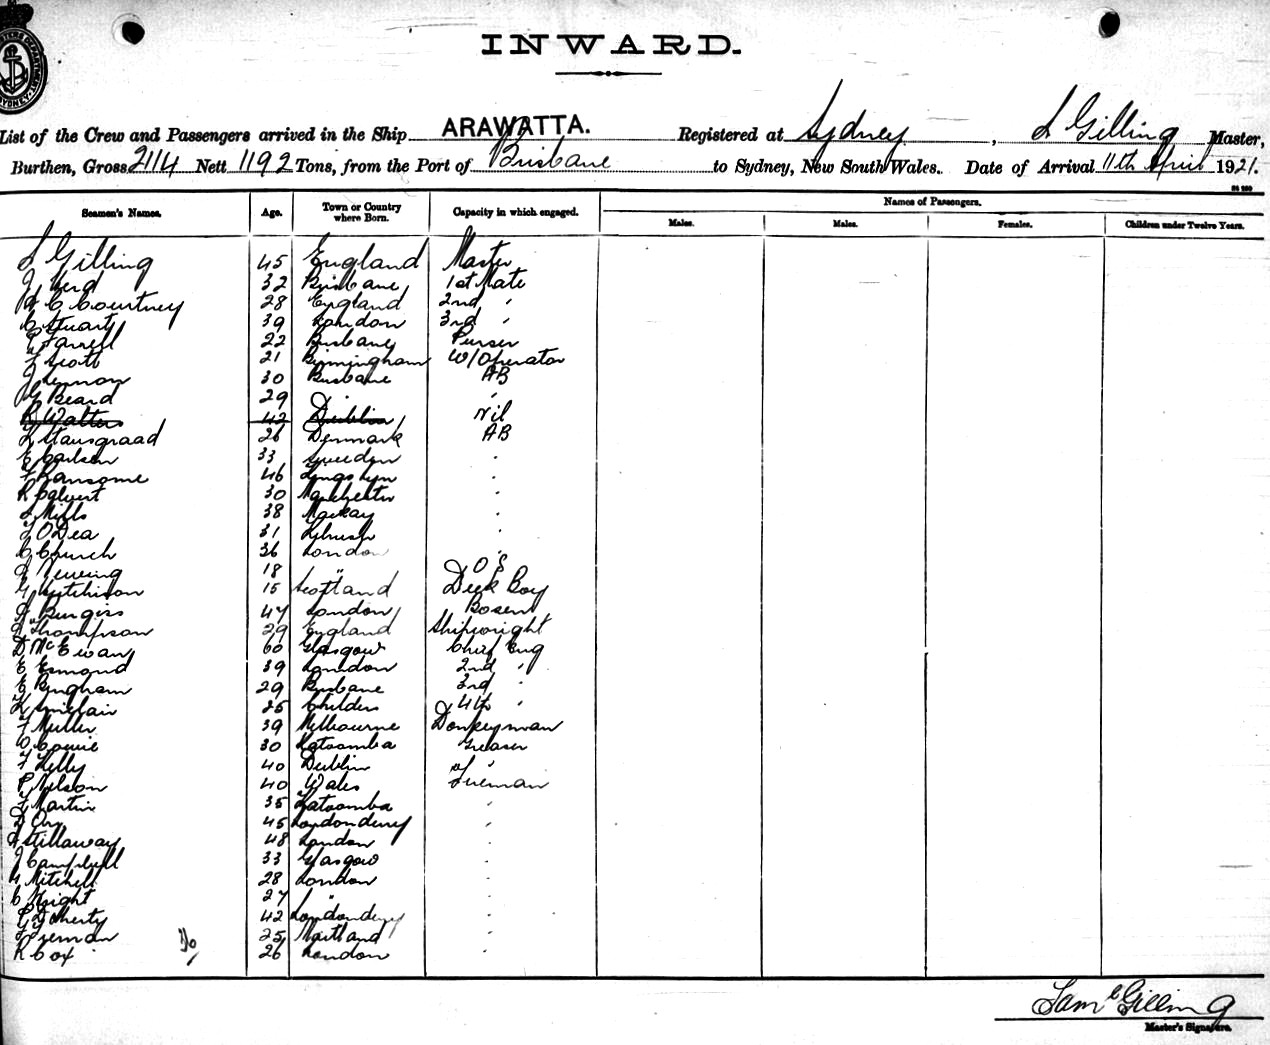 INWARD.
List of the Crew and Passengers arrived in the Ship ARAWATTA. Registered at Sydney, S Gilling Master,
Burthen, Gross 2114 Nett 1192 Tons, from the Port of Brisbane to Sydney, New South Wales. Date of Arrival 11th April 1921.
Names of Passengers.
Seamen's Names. Age. Town or Country where Born. Capacity in which engaged. Males. Males. Females. Children under Twelve Years.
S Gilling 45 England Master
J Herd 32 Brisbane 1st Mate
C Courtney 28 England 2nd "
C Stuart 39 London 3rd "
Farrell 22 Brisbane Purser
Scott 21 Birmingham W/Operator
J Lennon 30 Brisbane AB
G Beard 29 " "
R Walters 42 Dublin Nil
26 Denmark AB
E Carlsen 33 Sweden "
F Ransome 46 "
R Calvert 30 Manchester "
Mills 38 Mackay "
O'Dea 31 "
C Church 36 London "
18 " OS
G Hutchison 15 Scotland Deck Boy
Burgiss 47 London Bosun
Thompson 29 England Shipwright
D McEwan 60 Glasgow Chief Eng
E Esmond 39 London 2nd "
E Bingham 29 Brisbane 3rd "
Sinclair 25 Childers 4th "
F Muller 39 Melbourne Donkeyman
Cowie 30 Katoomba Greaser
F Kelly 40 Dublin "
P Nelson 40 Wales Fireman
Martin 35 Katoomba "
D Orr 45 Londonderry "
Stillaway 48 London "
J Campbell 33 Glasgow "
Mitchell 28 London "
C Knight 27 " "
Doherty 42 Londonderry "
25 Maitland "
R Cox 26 London "
Saml Gilling
Master's Signature.